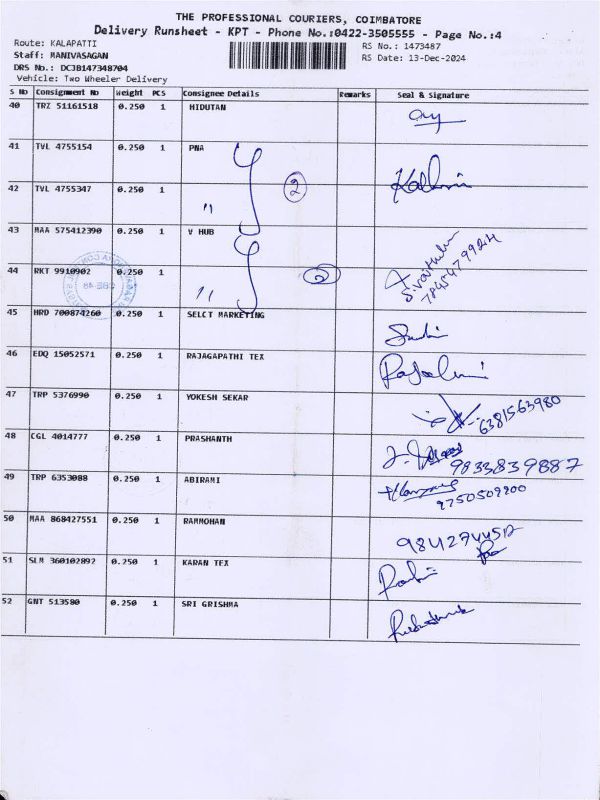 THE PROFESSIONAL COURIERS, COIMBATORE
Delivery Runsheet - KPT - Phone No.:0422-3505555 - Page No.:4
Route: KALAPATTI
RS No.: 1473487
Staff: MANIVASAGAN
RS Date: 13-Dec-2024
DRS No.: DCJB147348704
Vehicle: Two Wheeler Delivery
S No Consignment No Weight PCS Consignee Details Remarks Seal & Signature
40 TRZ 51161518 0.250 1 HIDUTAN
41 TVL 4755154 0.250 1 PNA
2
42 TVL 4755347 0.250 1 "
43 MAA 575412390 0.250 1 V HUB
44 RKT 9910902 0.250 1 " 2
45 HRD 700874260 0.250 1 SELCT MARKETING
46 EDQ 15052571 0.250 1 RAJAGAPATHI TEX
47 TRP 5376990 0.250 1 YOKESH SEKAR 6381563980
48 CGL 4014777 0.250 1 PRASHANTH 9833839887
49 TRP 6353088 0.250 1 ABIRAMI
50 MAA 868427551 0.250 1 RAMMOHAN
51 SLM 360102892 0.250 1 KARAN TEX
52 GNT 513580 0.250 1 SRI GRISHMA